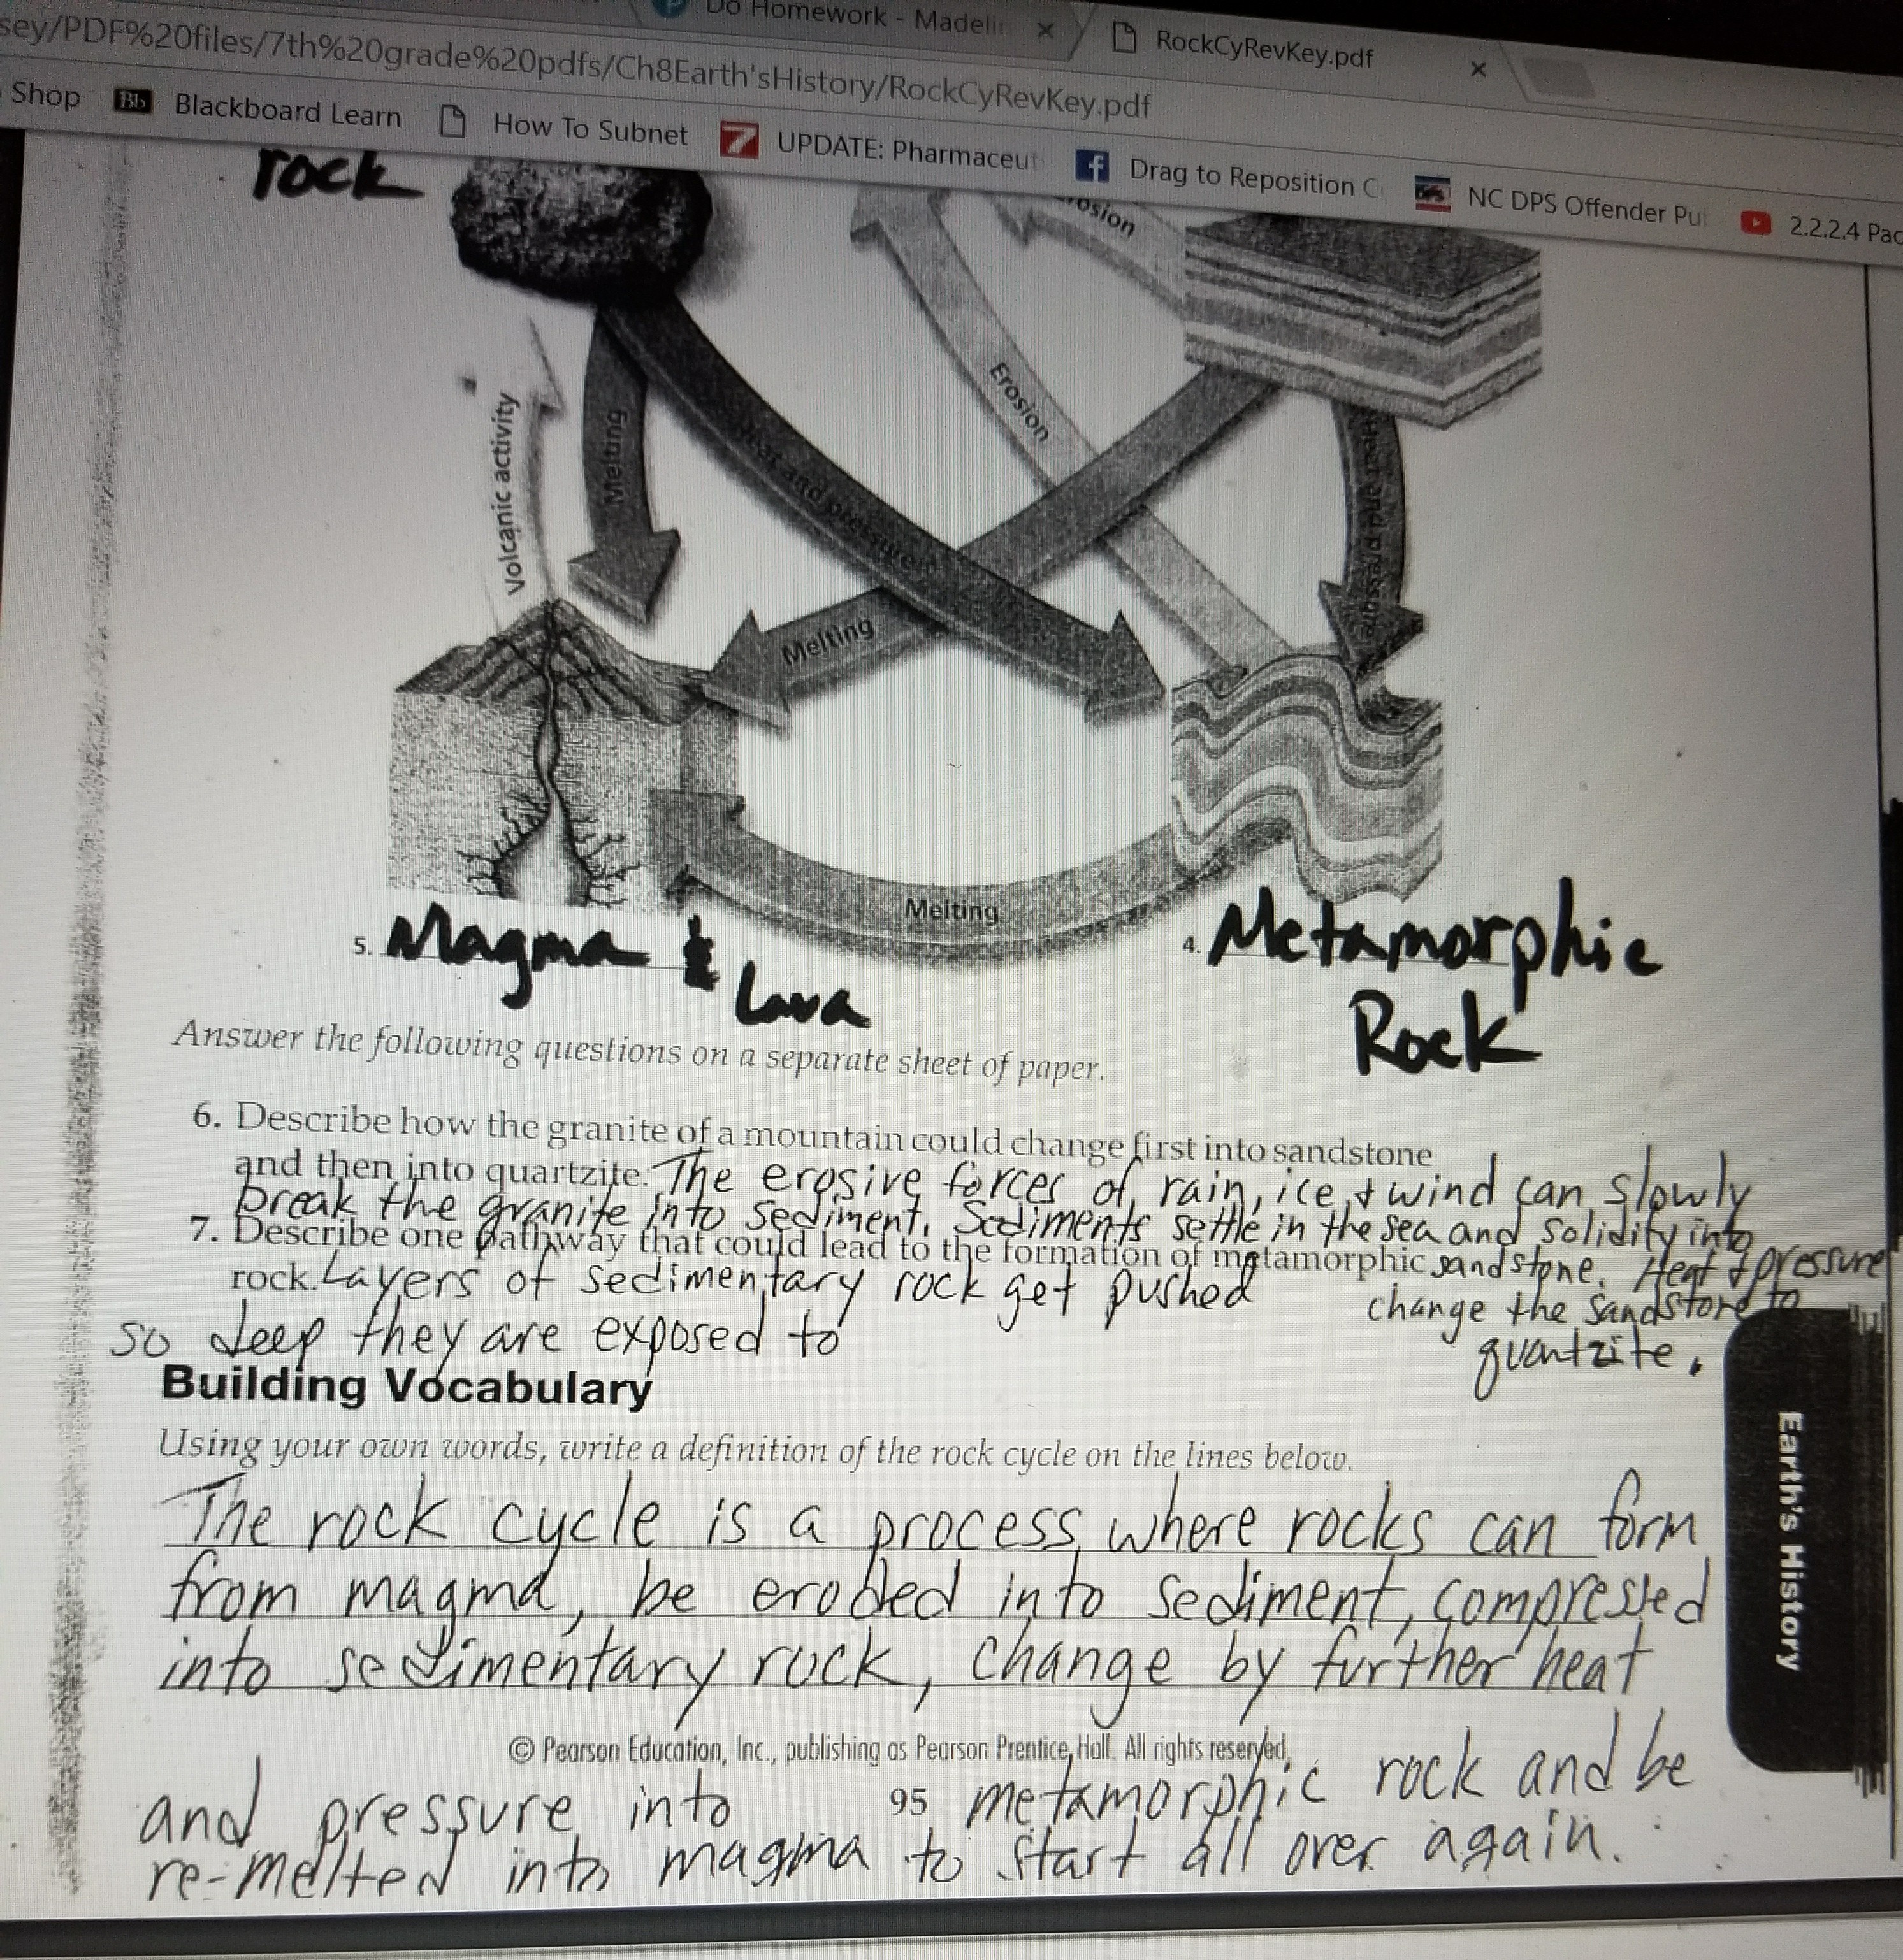 Do Homework - Madelin
RockCyRevKey.pdf
sey/PDF%20files/7th%20grade%20pdfs/Ch8Earth'sHistory/RockCyRevKey.pdf
Shop Bb Blackboard Learn How To Subnet 7 UPDATE: Pharmaceut f Drag to Reposition C NC DPS Offender Pu 2.2.2.4 Pac
rock
rosion
Erosion
Volcanic activity
Melting
Heat and pressure
Heat and pressure
Melting
Melting
5. Magma &
Lava
4. Metamorphic
Rock
Answer the following questions on a separate sheet of paper.
6. Describe how the granite of a mountain could change first into sandstone
and then into quartzite. The erosive forces of rain, ice & wind can slowly
break the granite into sediment. Sediments settle in the sea and solidify into
7. Describe one pathway that could lead to the formation of metamorphic sandstone. Heat & pressure
rock. Layers of sedimentary rock get pushed change the sandstone to
so deep they are exposed to quartzite.
Building Vocabulary
Using your own words, write a definition of the rock cycle on the lines below.
The rock cycle is a process where rocks can form
from magma, be eroded into sediment, compressed
into sedimentary rock, change by further heat
© Pearson Education, Inc., publishing as Pearson Prentice Hall. All rights reserved.
and pressure into 95 metamorphic rock and be
re-melted into magma to start all over again.
Earth's History